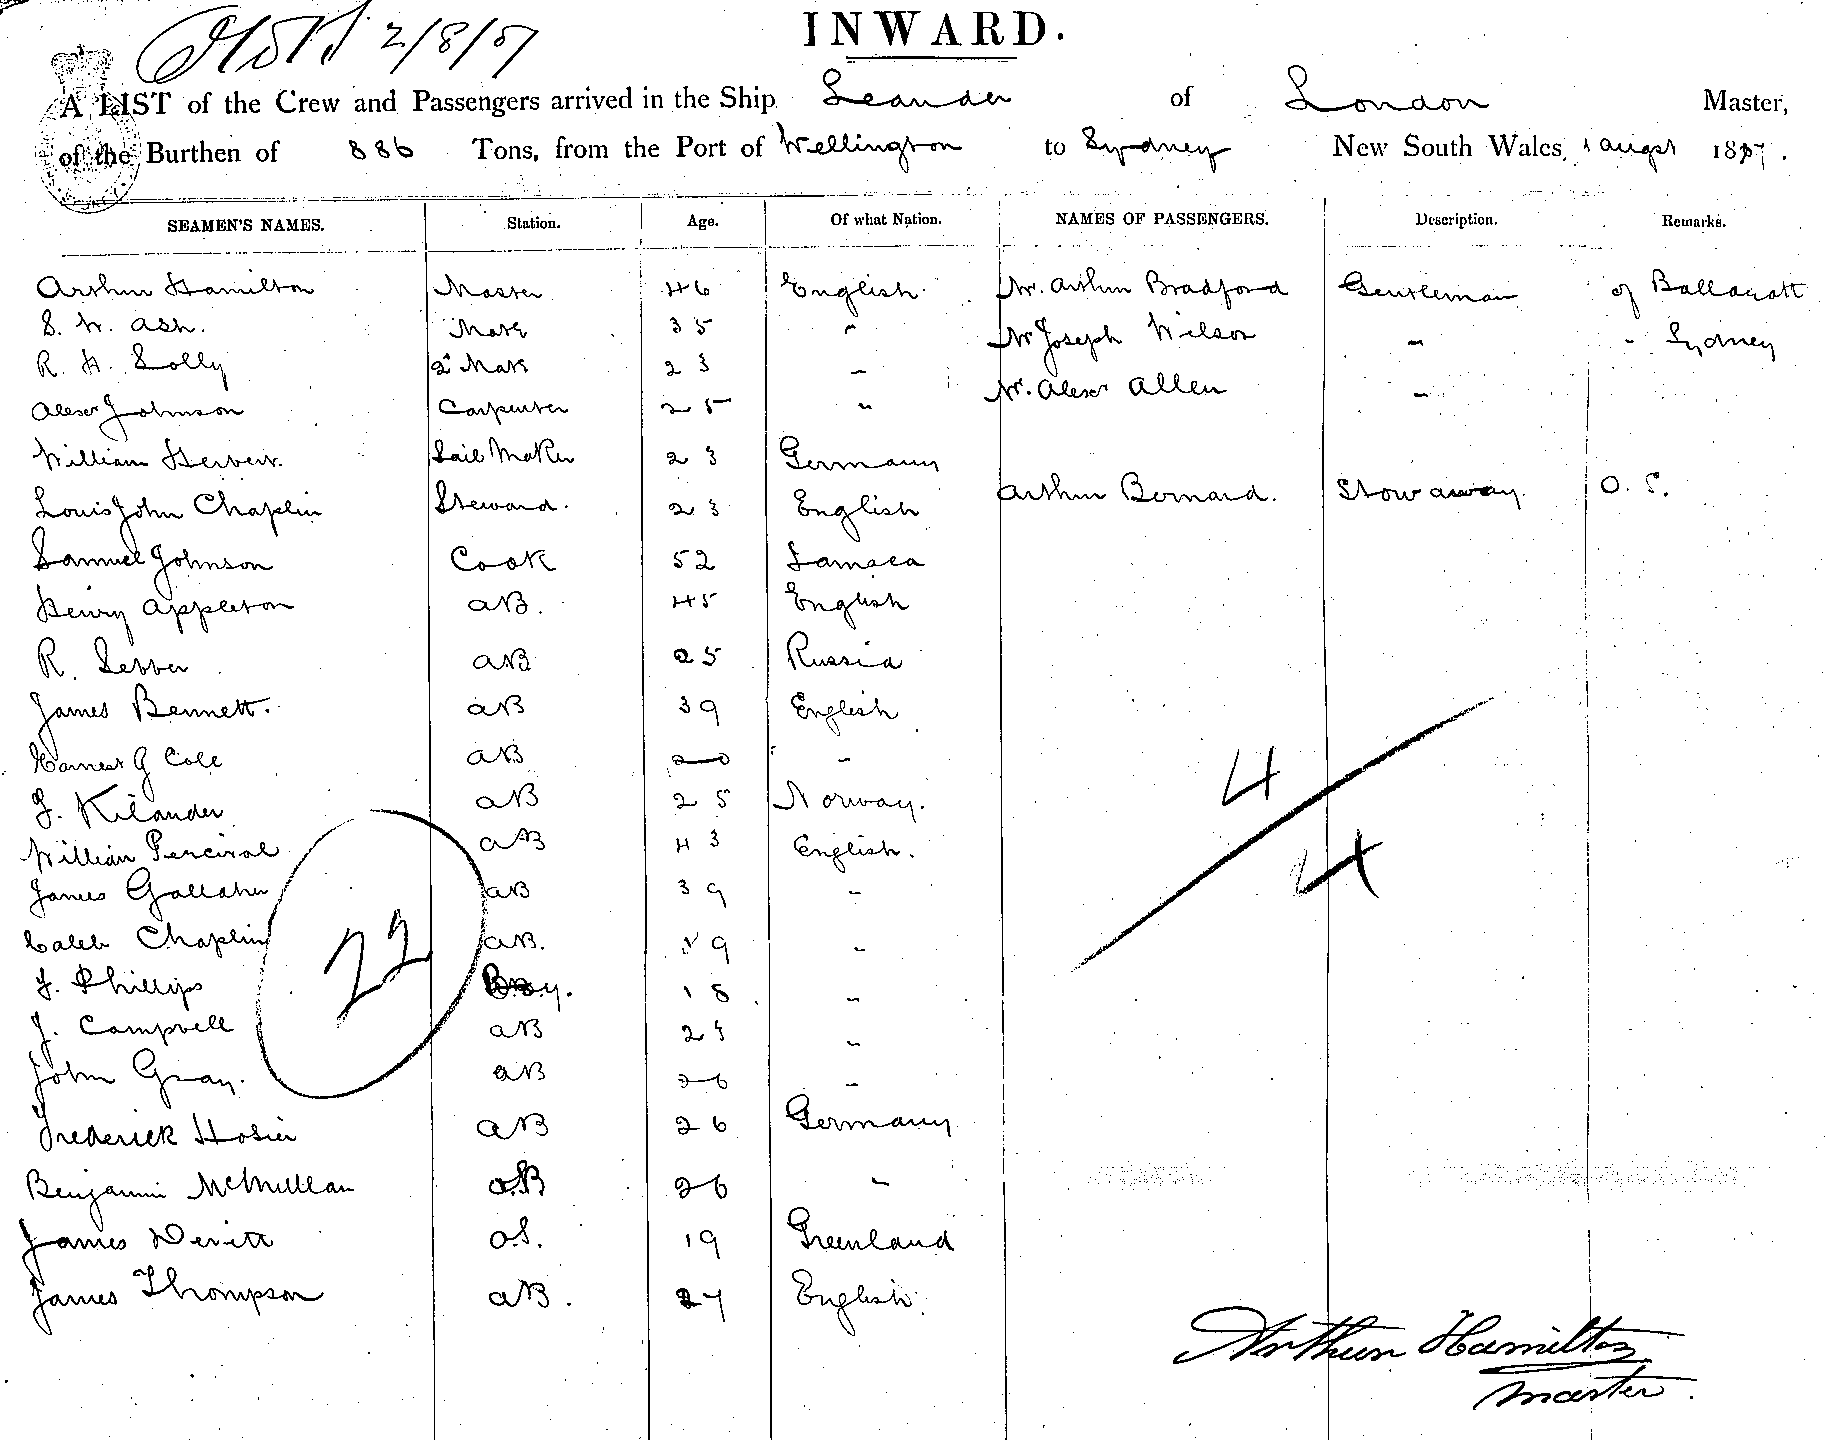 2/8/87
INWARD.
A LIST of the Crew and Passengers arrived in the Ship Leander of London Master,
of the Burthen of 886 Tons, from the Port of Wellington to Sydney New South Wales, 1 augst 1887.
SEAMEN'S NAMES. Station. Age. Of what Nation. NAMES OF PASSENGERS. Description. Remarks.
Arthur Hamilton Master 46 English Mr. Arthur Bradford Gentleman of Ballaratt
S. W. Ash. Mate 35 " Mr Joseph Wilson " " Sydney
R. H. Solly 2d Mate 23 " Mr. Alexr Allen "
Alexr Johnson Carpenter 25 "
William Herbert. Sail Maker 23 Germany
Louis John Chaplin Steward. 23 English Arthur Bernard. Stowaway O. S.
Samuel Johnson Cook 52 Samsea
Henry Appleton AB. 45 English
R. Sebber AB 25 Russia
James Bennett. AB 39 English
Earnest G Cole AB 20 "
J. Kilander AB 25 Norway.
William Percival AB 43 English.
James Gallaher AB 39 "
Caleb Chaplin AB. 19 "
J. Phillips Boy. 18 "
J. Campbell AB 23 "
John Gray. AB 26 "
Frederick Hosier AB 26 Germany
Benjamin McMullan AB 26 "
James Devitt O.S. 19 Greenland
James Thompson AB. 27 English.
22
4
4
Arthur Hamilton
Master.